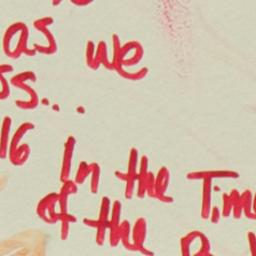 as we
ss...
16 In the Time
of the